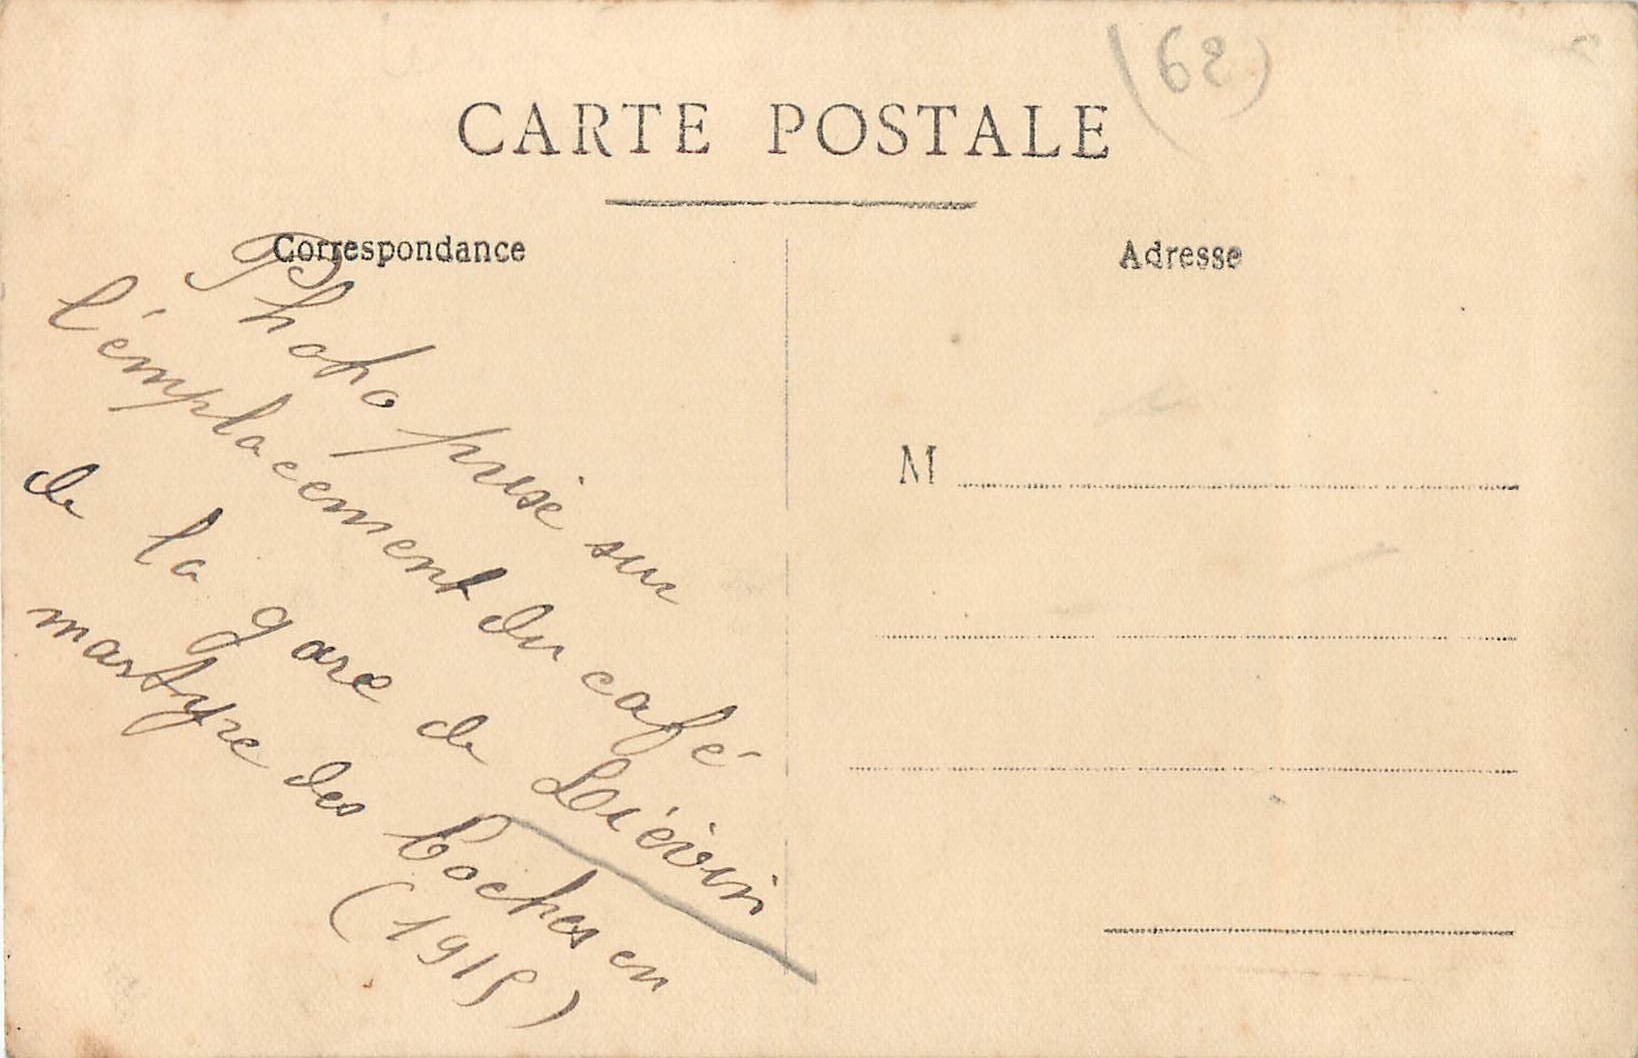 (62)
CARTE POSTALE
Correspondance
Adresse
Photo prise sur
l'émplacement du café
de la gare de Liévin
martyre des boches en
(1915)
M